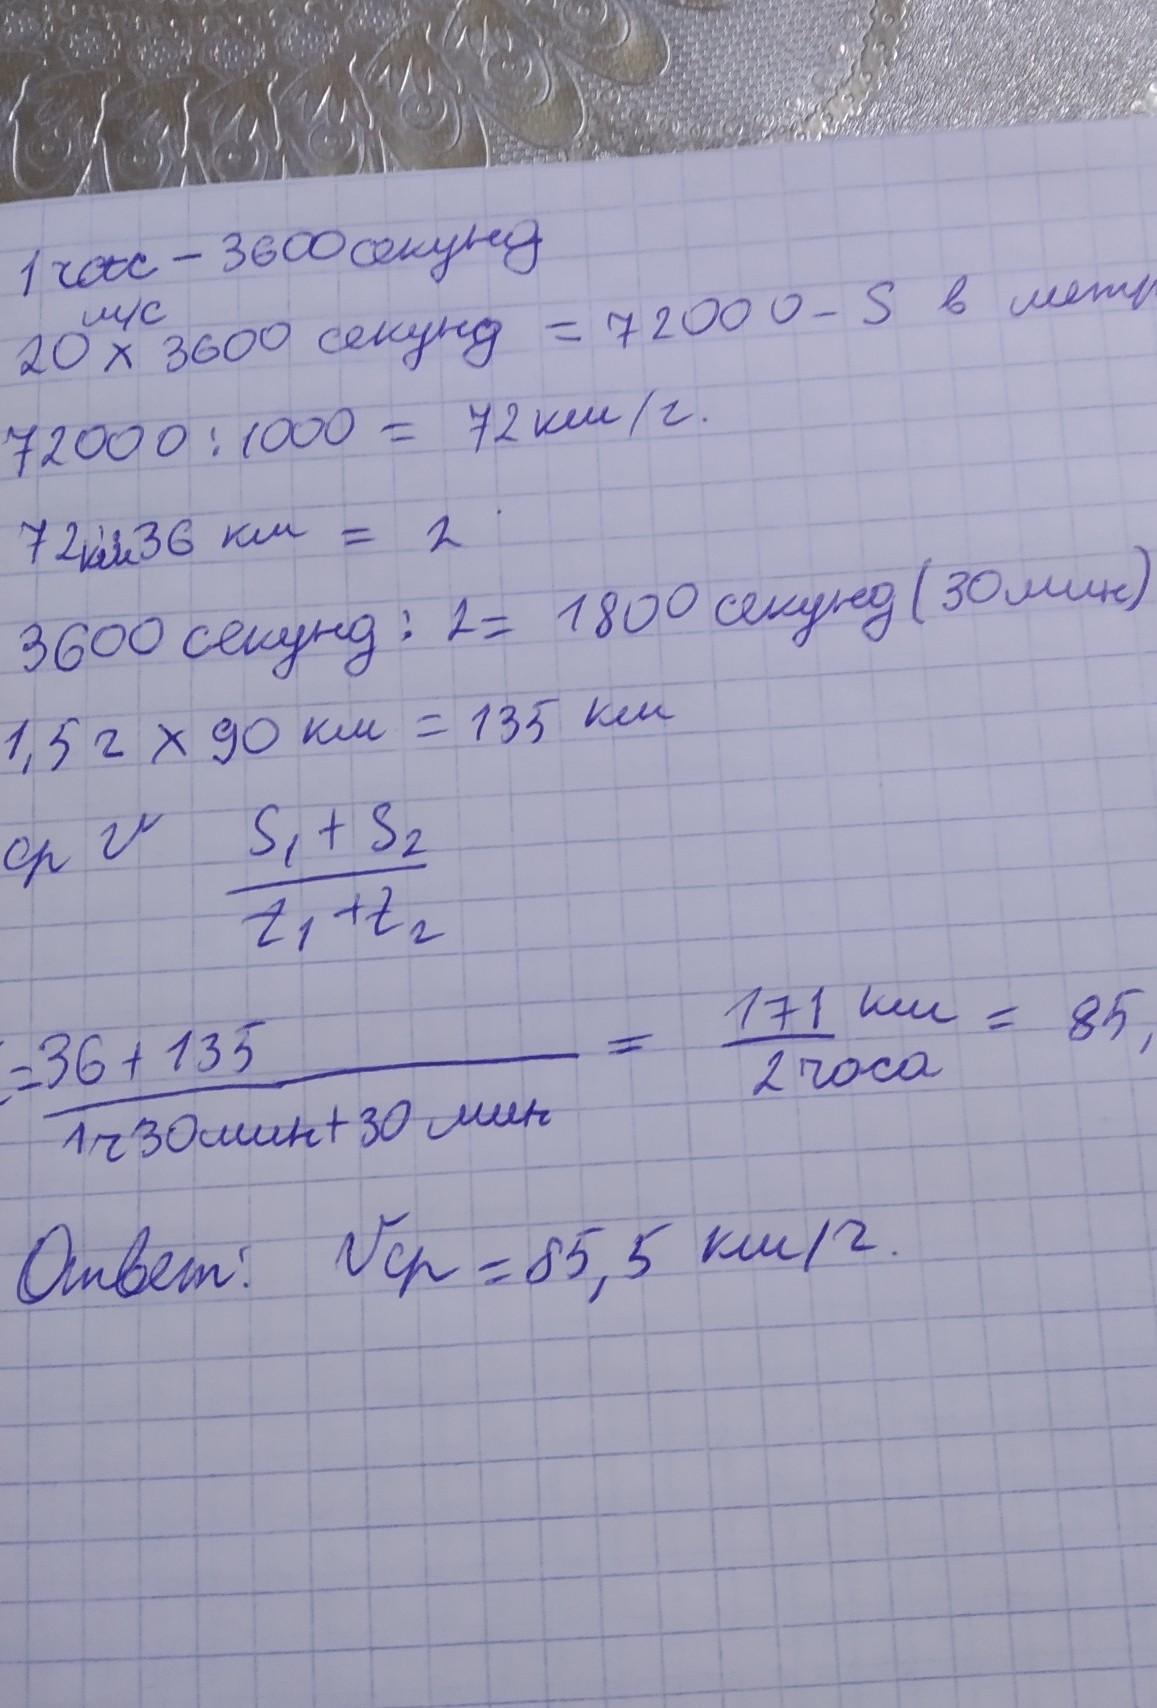 1 час - 3600 секунд
м/с
20 х 3600 секунд = 72000 - S в метр
72000 : 1000 = 72 км/ч.
72км:36 км = 2
3600 секунд : 2 = 1800 секунд (30 мин)
1,5 ч х 90 км = 135 км
ср v S₁ + S₂
t₁ + t₂
= 36 + 135 = 171 км = 85,
1ч 30 мин + 30 мин 2 часа
Ответ: Vср = 85,5 км/ч.